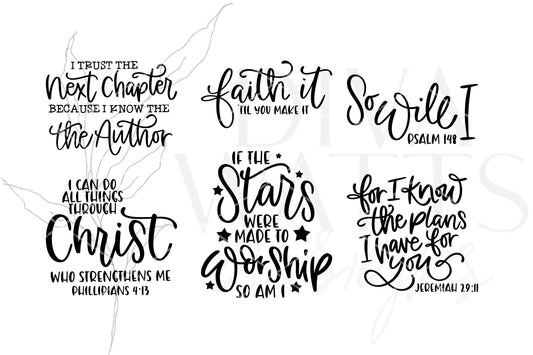 I TRUST THE
Next Chapter
BECAUSE I KNOW THE
the Author
faith it
'TIL YOU MAKE IT
So Will I
PSALM 148
I CAN DO
ALL THINGS
THROUGH
Christ
WHO STRENGTHENS ME
PHILLIPIANS 4:13
IF THE
Stars
WERE
MADE TO
Worship
SO AM I
for I know
the plans
I have for
you
JEREMIAH 29:11
DIVA
WATTS
designs